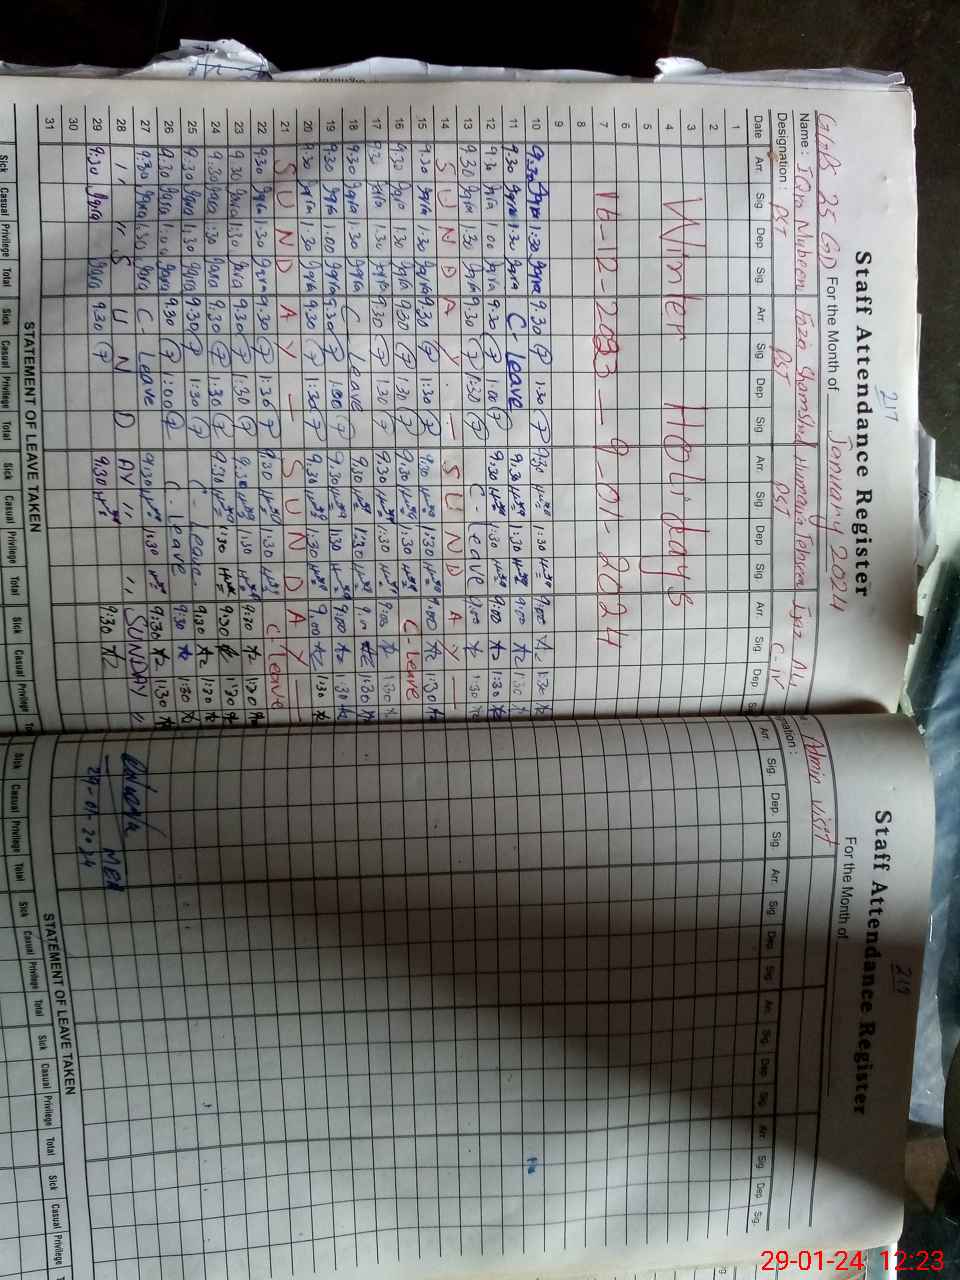 217
Staff Attendance Register
GGPS 25 GD For the Month of January 2024
Name : Iqra Mubeen Fozia Shamshad Humaira Tabseem Ijaz Ali
Designation : PST PST PST C-IV
Date Arr. Sig Dep. Sig Arr. Sig Dep. Sig Arr. Sig Dep. Sig Arr. Sig Dep.
1
2
3
4 Winter Holidays
5
6
7 16-12-2023 — 9-01-2024
8
9
10 9.30 Iqra 1:30 Iqra 9.30 1:30 9:30 1:30 9:00 1:30
11 9.30 Iqra 1:30 Iqra C- Leave 9,30 1:30 9:00 1:30
12 9.30 Iqra 1:00 Iqra 9.30 1:00 9,30 1:30 9:00 1:30
13 9.30 Iqra 1:30 Iqra 9.30 1:30 C - Leave 9:00 1:30
14 S U N D A Y — S U N D A Y —
15 9.30 Iqra 1:30 Iqra 9.30 1:30 9.30 1:30 9:00 1:30
16 9.30 Iqra 1:30 Iqra 9.30 1:30 9.30 1:30 C-Leave
17 9.30 Iqra 1:30 Iqra 9.30 1:30 9.30 1:30 9:00 1:30
18 9.30 Iqra 1:30 Iqra C Leave 9.30 1:30 9:00 1:30
19 9.30 Iqra 1:00 Iqra 9.30 1:00 9.30 1:30 9:00 1:30
20 9.30 Iqra 1:30 Iqra 9.30 1:30 9.30 1:30 9:00 1:30
21 S U N D A Y — S U N D A Y — C-Leave
22 9.30 Iqra 1:30 Iqra 9.30 1:30 9.30 1:30 9:20 1:20
23 9.30 Iqra 1:30 Iqra 9.30 1:30 9.30 1:30 9:30 1:20
24 9.30 Iqra 1:30 Iqra 9.30 1:30 9.30 1:30 9:30 1:20
25 9.30 Iqra 1:30 Iqra 9.30 1:30 C - Leave 9:30 1:30
26 9.30 Iqra 1:00 Iqra 9.30 1:00 C - Leave 9:30 1:30
27 9.30 Iqra 1.30 Iqra C - Leave 9.30 1:30 9:30 1:30
28 S U N D AY " " SUNDAY "
29 9.30 Iqra Iqra 9.30 9.30 9:30
30
31
STATEMENT OF LEAVE TAKEN
Sick Casual Privilege Total Sick Casual Privilege Total Sick Casual Privilege Total Sick Casual Privilege
219
Staff Attendance Register
For the Month of
Admin visit
Arr. Sig. Dep. Sig. Arr. Sig. Dep. Sig. Arr. Sig. Dep. Sig. Arr. Sig. Dep. Sig.
MEA
29-01-2024
STATEMENT OF LEAVE TAKEN
Sick Casual Privilege Total Sick Casual Privilege Total Sick Casual Privilege Total Sick Casual Privilege
29-01-24 12:23